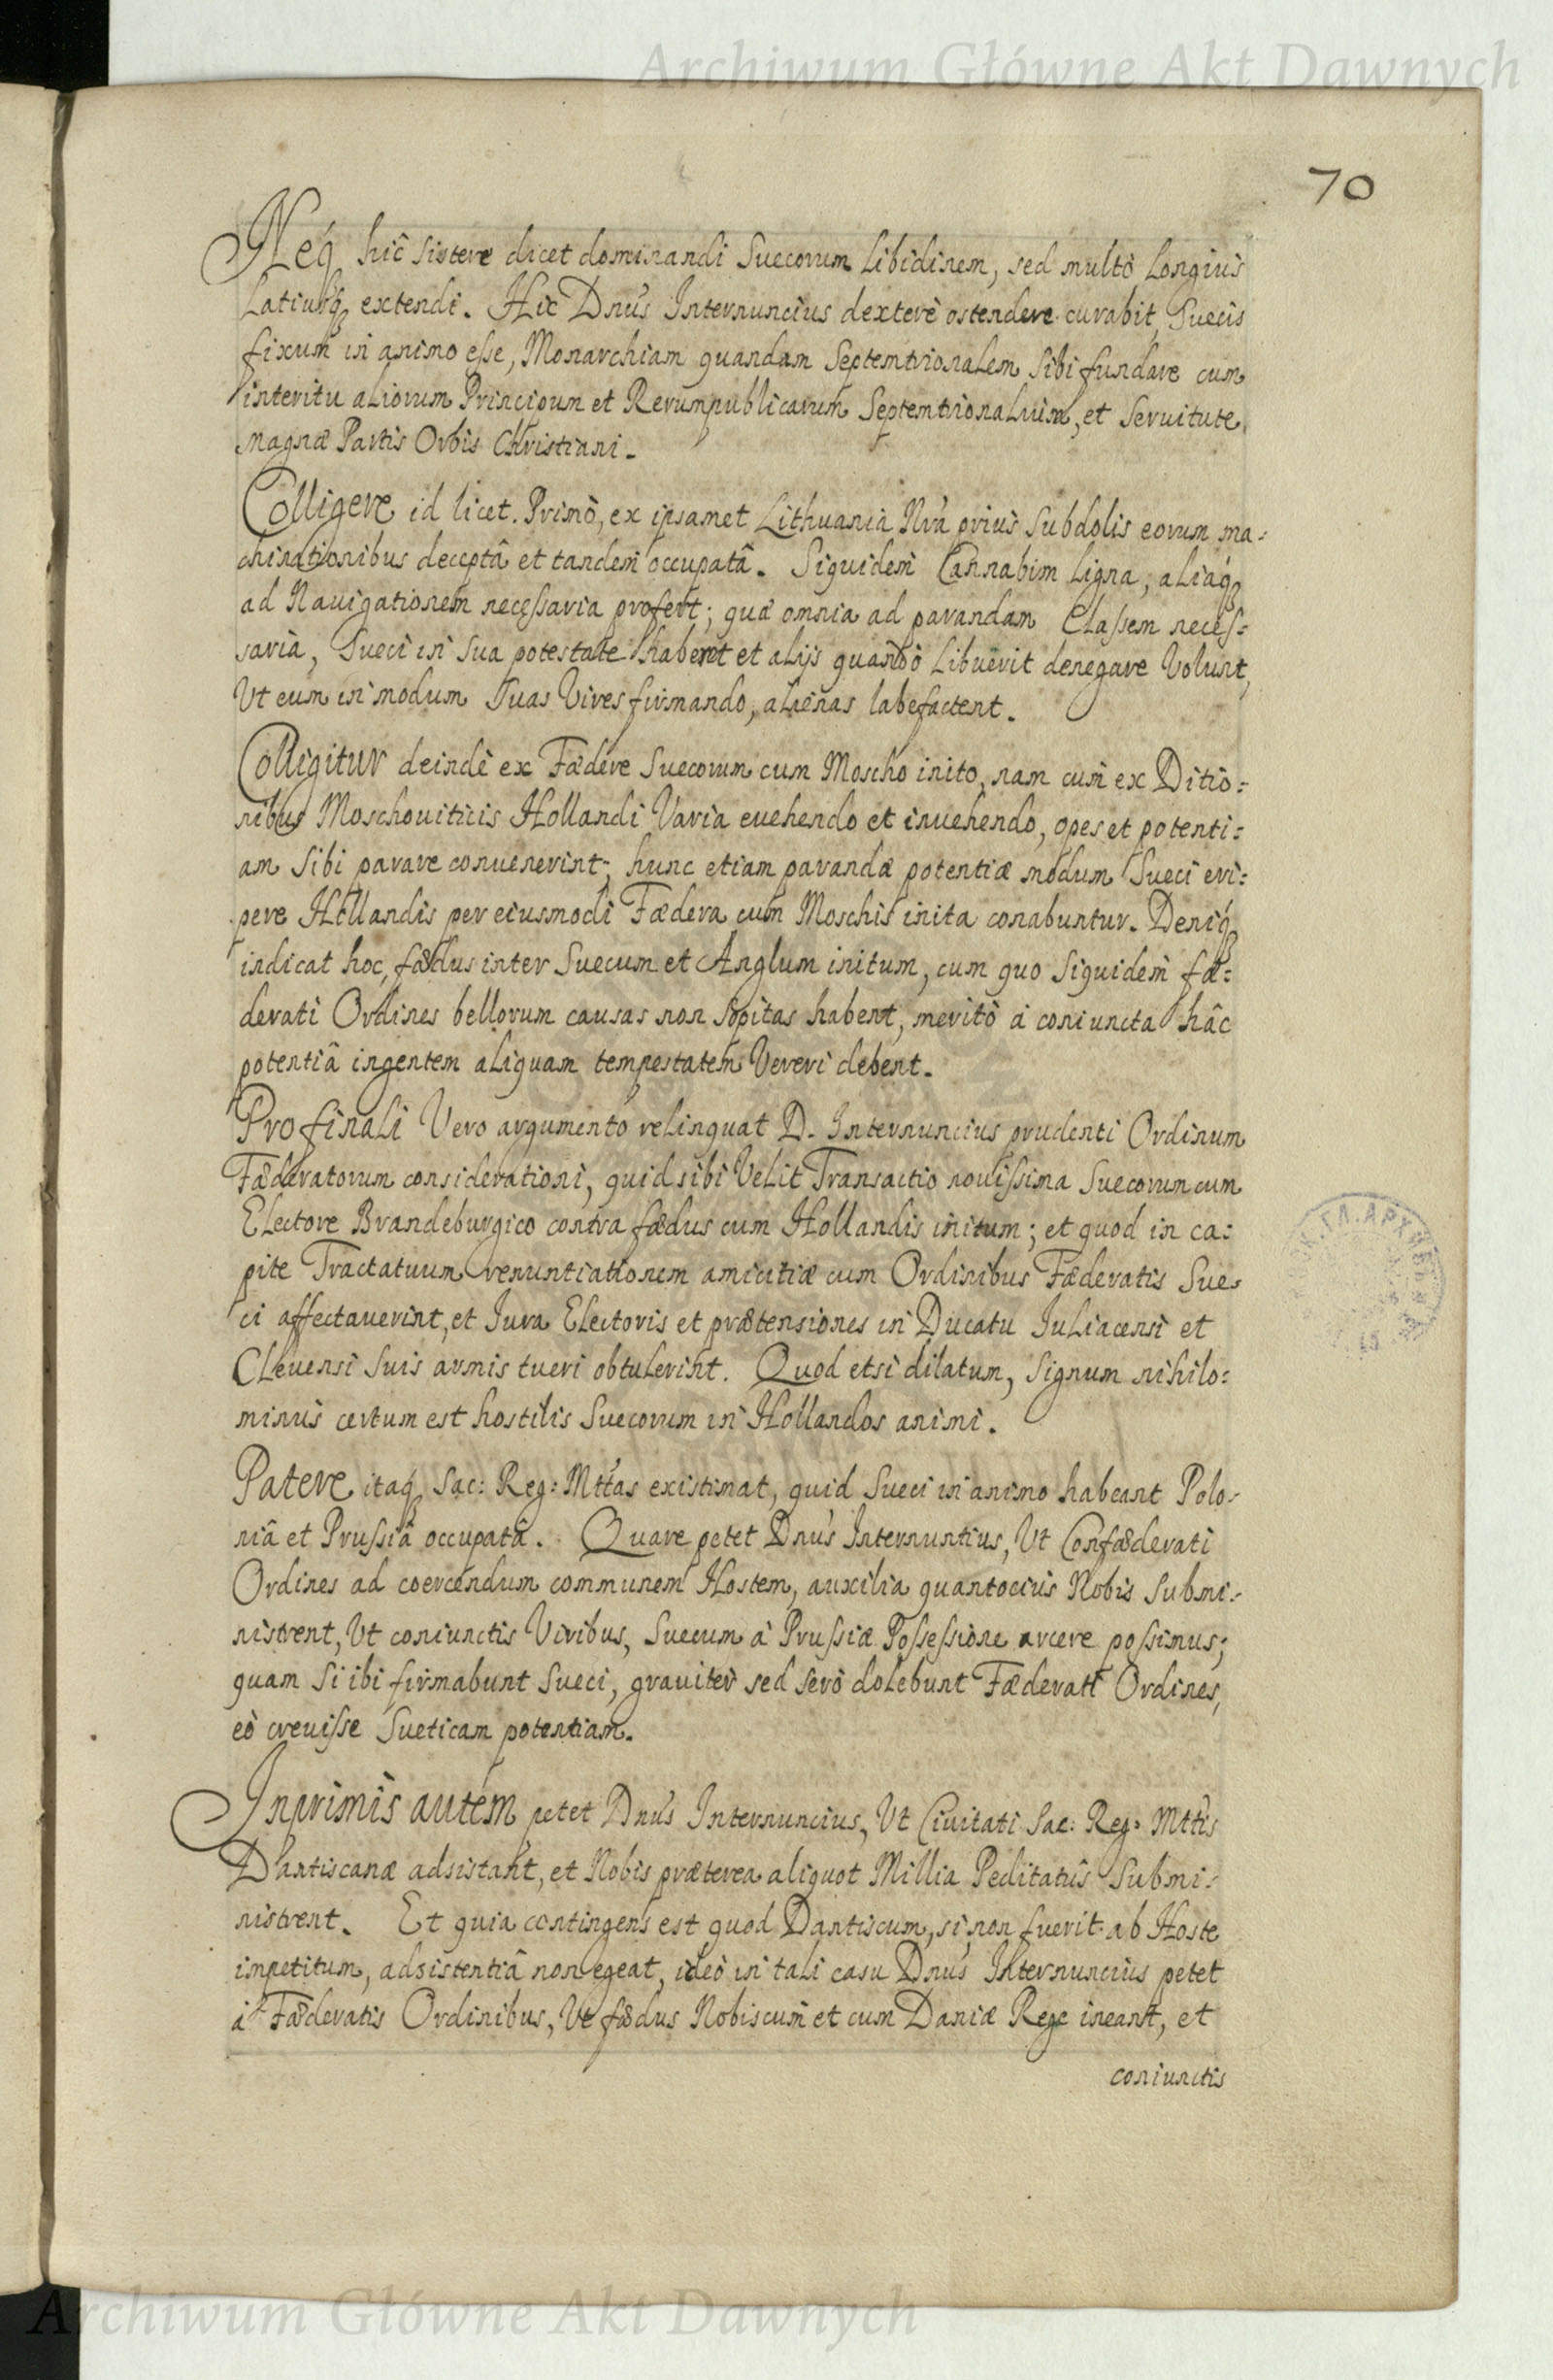 Archiwum Główne Akt Dawnych
70
Neq́ hîc sistere dicet dominandi Suecorum Libidinem, sed multò Longiùs
Latiusq́ extendi. Hic Dnūs Internuncius dexterè ostendere curabit, Suecis
fixum in animo esse, Monarchiam quandam Septemtrionalem sibi fundare cum
interitu aliorum Principum et Rerumpublicarum Septemtrionalium, et Seruitute
magnæ Partis Orbis Christiani.
Colligere id licet. Primò, ex ipsamet Lithuania Nrâ priùs subdolis eorum ma-
chinationibus deceptâ et tandem occupatâ. Siquidem Cannabim ligna, aliaq́
ad Nauigationem necessaria profert; quæ omnia ad parandam Classem neces=
saria, Sueci in sua potestate habent et alijs quando Libuerit denegare Volunt,
Ut eum in modum Suas Vires firmando, alienas labefactent.
Colligitur deindè ex Fœdere Suecorum cum Moscho inito, nam cum ex Ditio=
nibus Moschouiticis Hollandi Varia euehendo et inuehendo, opes et potenti=
am sibi parare conuenerint; hunc etiam parandæ potentiæ modum Sueci eri=
pere Hollandis per eiusmodi Fœdera cum Moschis inita conabuntur. Deniq́
indicat hoc, fœdus inter Suecum et Anglum initum, cum quo Siquidem fœ=
derati Ordines bellorum causas non sopitas habent, meritò à coniuncta hâc
potentiâ ingentem aliquam tempestatem Vereri debent.
Pro finali Vero argumento relinquat D. Internuncius prudenti Ordinum
Fœderatorum considerationi, quid sibi Velit Transactio nouissima Suecorum cum
Electore Brandeburgico contra fœdus cum Hollandis initum; et quod in ca=
pite Tractatuum renuntiationem amicitiæ cum Ordinibus Fœderatis Sue-
ci affectauerint, et Jura Electoris et prætensiones in Ducatu Juliacensi et
Cleuensi suis armis tueri obtulerint. Quod etsi dilatum, Signum nihilo=
minùs certum est hostilis Suecorum in Hollandos animi.
Patere itaq́ Sac: Reg: Mttas existimat, quid Sueci in animo habeant Polo-
niâ et Prussiâ occupatâ. Quare petet Dnūs Internuntius, Ut Confœderati
Ordines ad coercendum communem Hostem, auxilia quantocius Nobis submi-
nistrent, Ut coniunctis Viribus, Suecum à Prussiæ Possessione arcere possimus;
quam si ibi firmabunt Sueci, grauiter sed serò dolebunt Fœderati Ordines,
eò creuisse Sueticam potentiam.
Inprimis autem petet Dnūs Internuncius, Ut Ciuitati Sac: Reg: Mttis
Dantiscanæ adsistant, et Nobis præterea aliquot Millia Peditatûs submi-
nistrent. Et quia contingens est quod Dantiscum, si non fuerit ab Hoste
impetitum, adsistentiâ non egeat, ideò in tali casu Dnūs Internuncius petet
à Fœderatis Ordinibus, Ut fœdus Nobiscum et cum Daniæ Rege ineant, et
coniunctis
Archiwum Główne Akt Dawnych